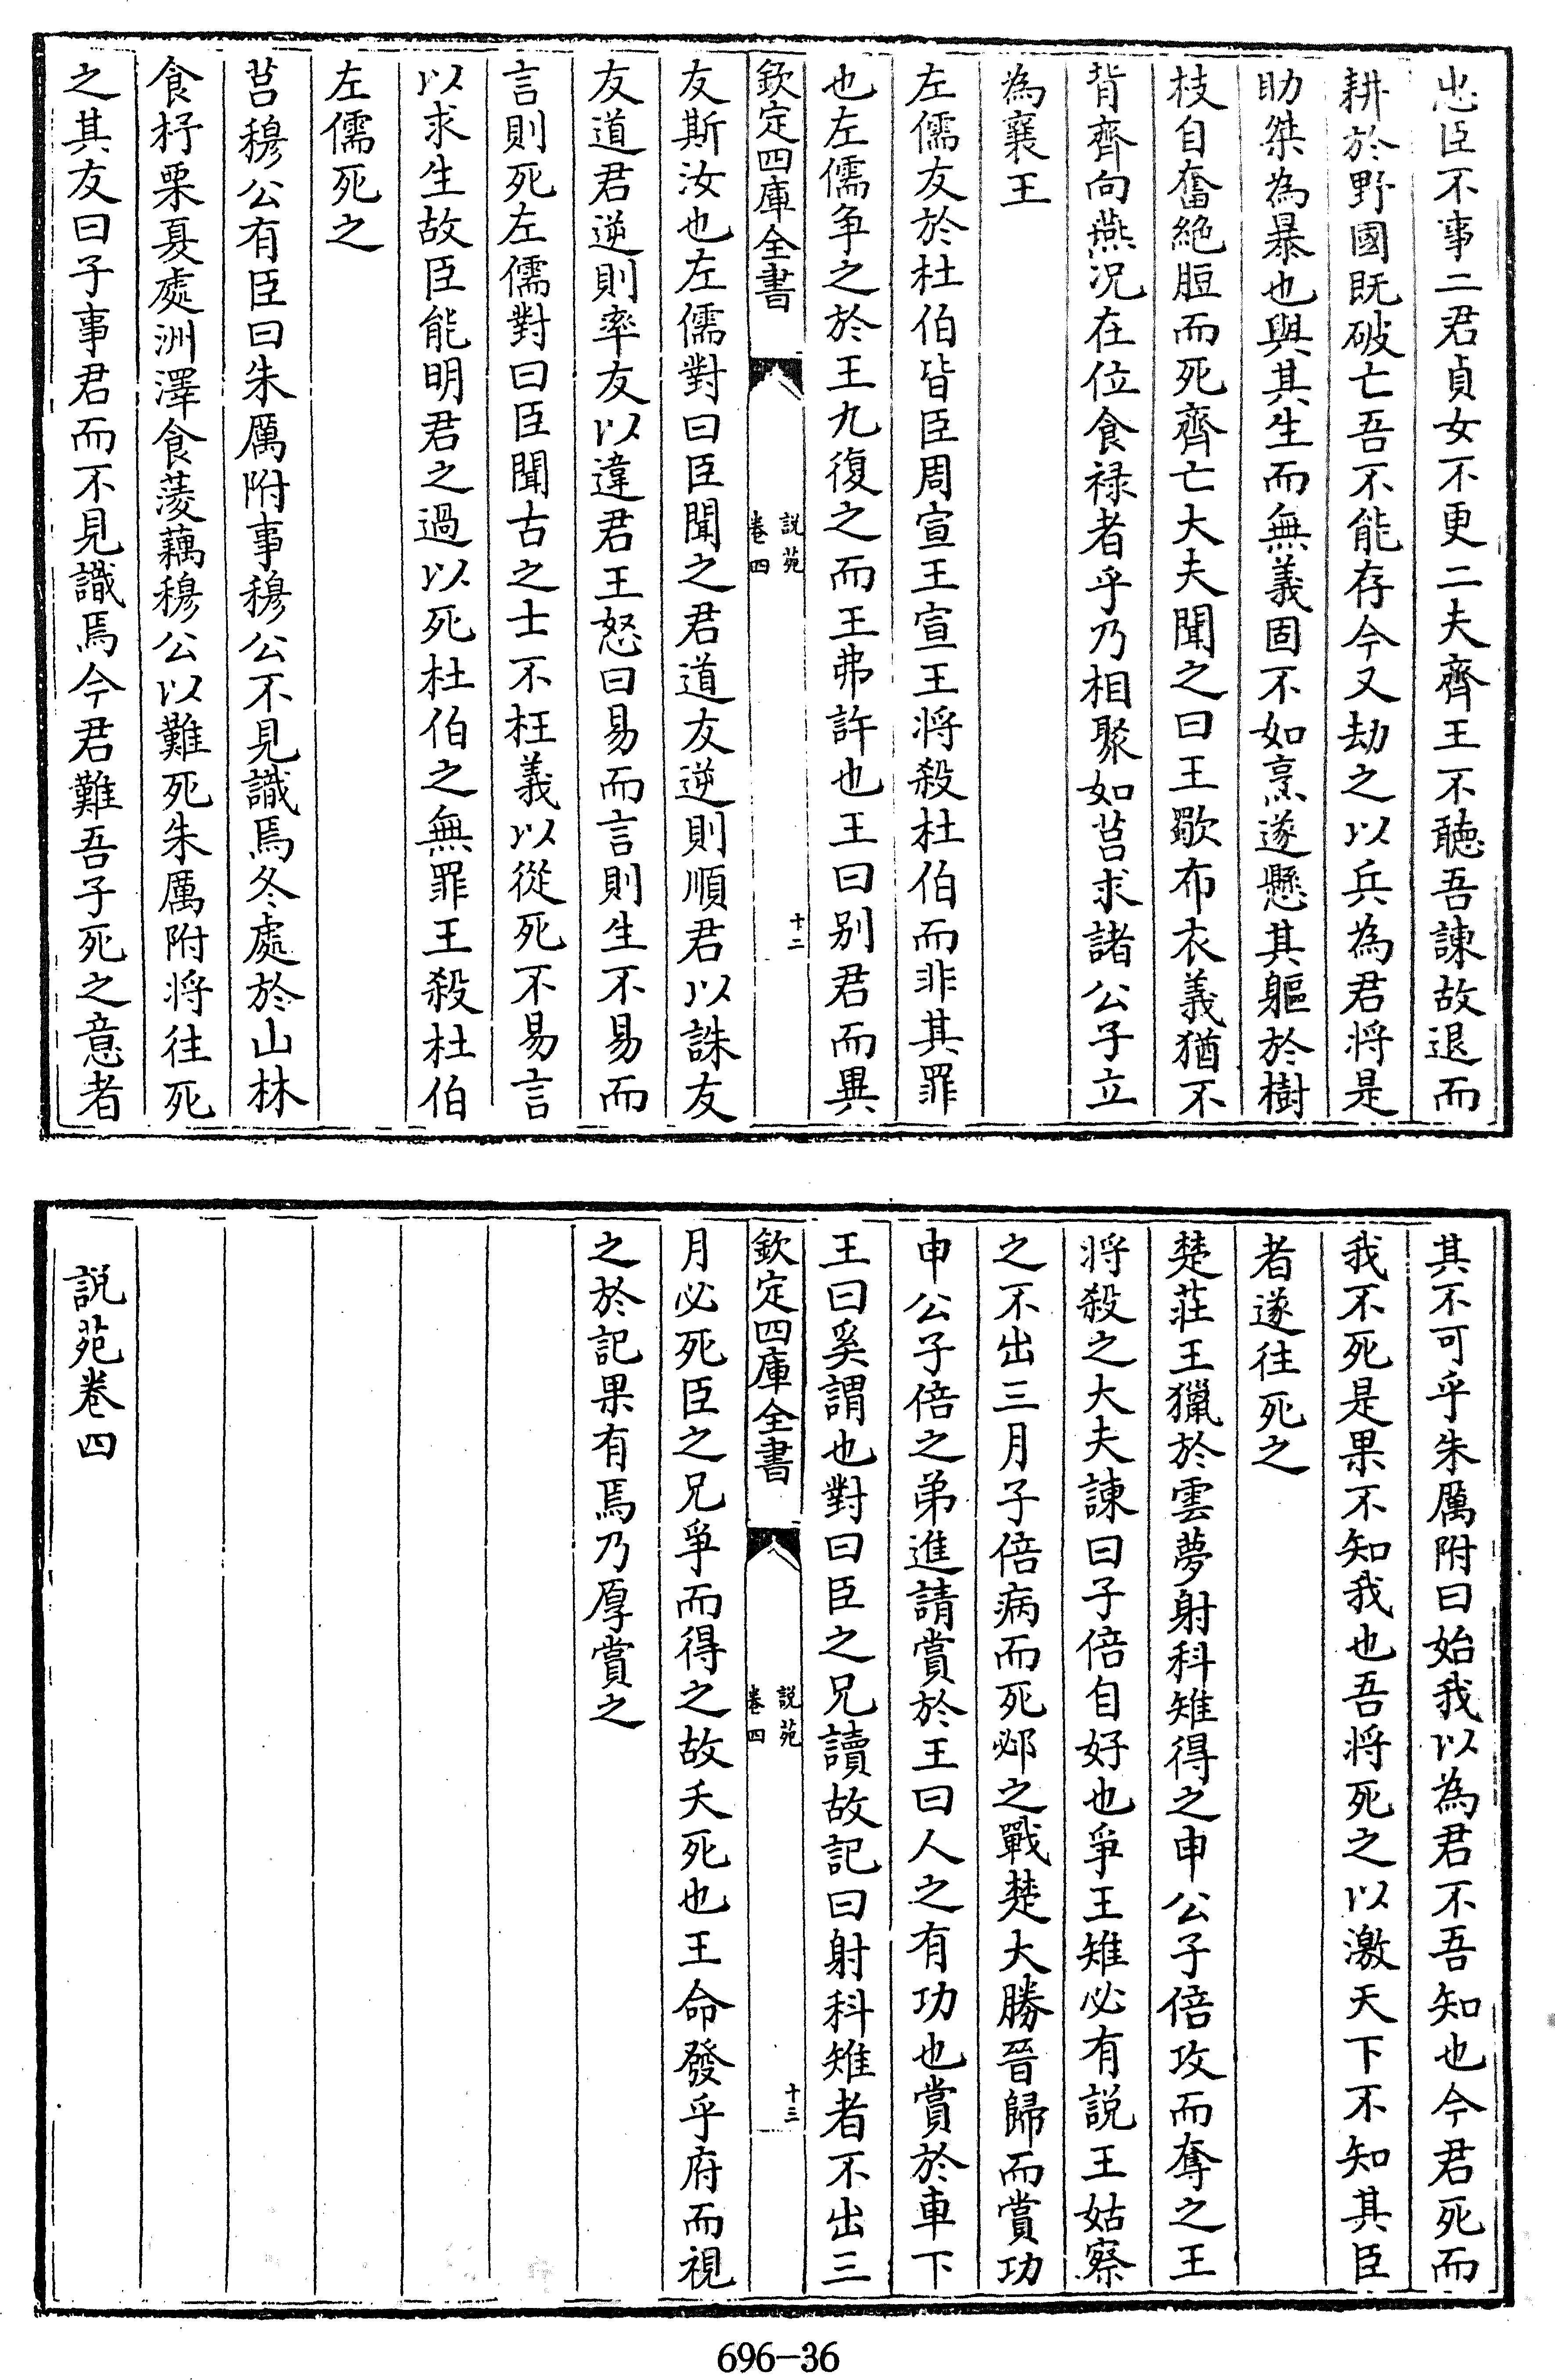 忠臣不事二君貞女不更二夫齊王不聴吾諫故退而
耕於野國既破亡吾不能存今又劫之以兵為君将是
助桀為暴也與其生而無義固不如烹遂懸其軀於樹
枝自奮絶脰而死齊亡大夫聞之曰王歜布衣義猶不
背齊向燕况在位食禄者乎乃相聚如莒求諸公子立
為襄王
左儒友於杜伯皆臣周宣王宣王将殺杜伯而非其罪
也左儒争之於王九復之而王弗許也王曰别君而異
欽定四庫全書
説苑
卷四
十二
友斯汝也左儒對曰臣聞之君道友逆則順君以誅友
友道君逆則率友以違君王怒曰易而言則生不易而
言則死左儒對曰臣聞古之士不枉義以從死不易言
以求生故臣能明君之過以死杜伯之無罪王殺杜伯
左儒死之
莒穆公有臣曰朱厲附事穆公不見識焉冬處於山林
食杼栗夏處洲澤食蔆藕穆公以難死朱厲附将往死
之其友曰子事君而不見識焉今君難吾子死之意者
其不可乎朱厲附曰始我以為君不吾知也今君死而
我不死是果不知我也吾将死之以激天下不知其臣
者遂往死之
楚莊王獵於雲夢射科雉得之申公子倍攻而奪之王
将殺之大夫諫曰子倍自好也爭王雉必有説王姑察
之不出三月子倍病而死邲之戰楚大勝晉歸而賞功
申公子倍之弟進請賞於王曰人之有功也賞於車下
王曰奚謂也對曰臣之兄讀故記曰射科雉者不出三
欽定四庫全書
説苑
卷四
十三
月必死臣之兄爭而得之故夭死也王命發乎府而視
之於記果有焉乃厚賞之
説苑卷四
696-36